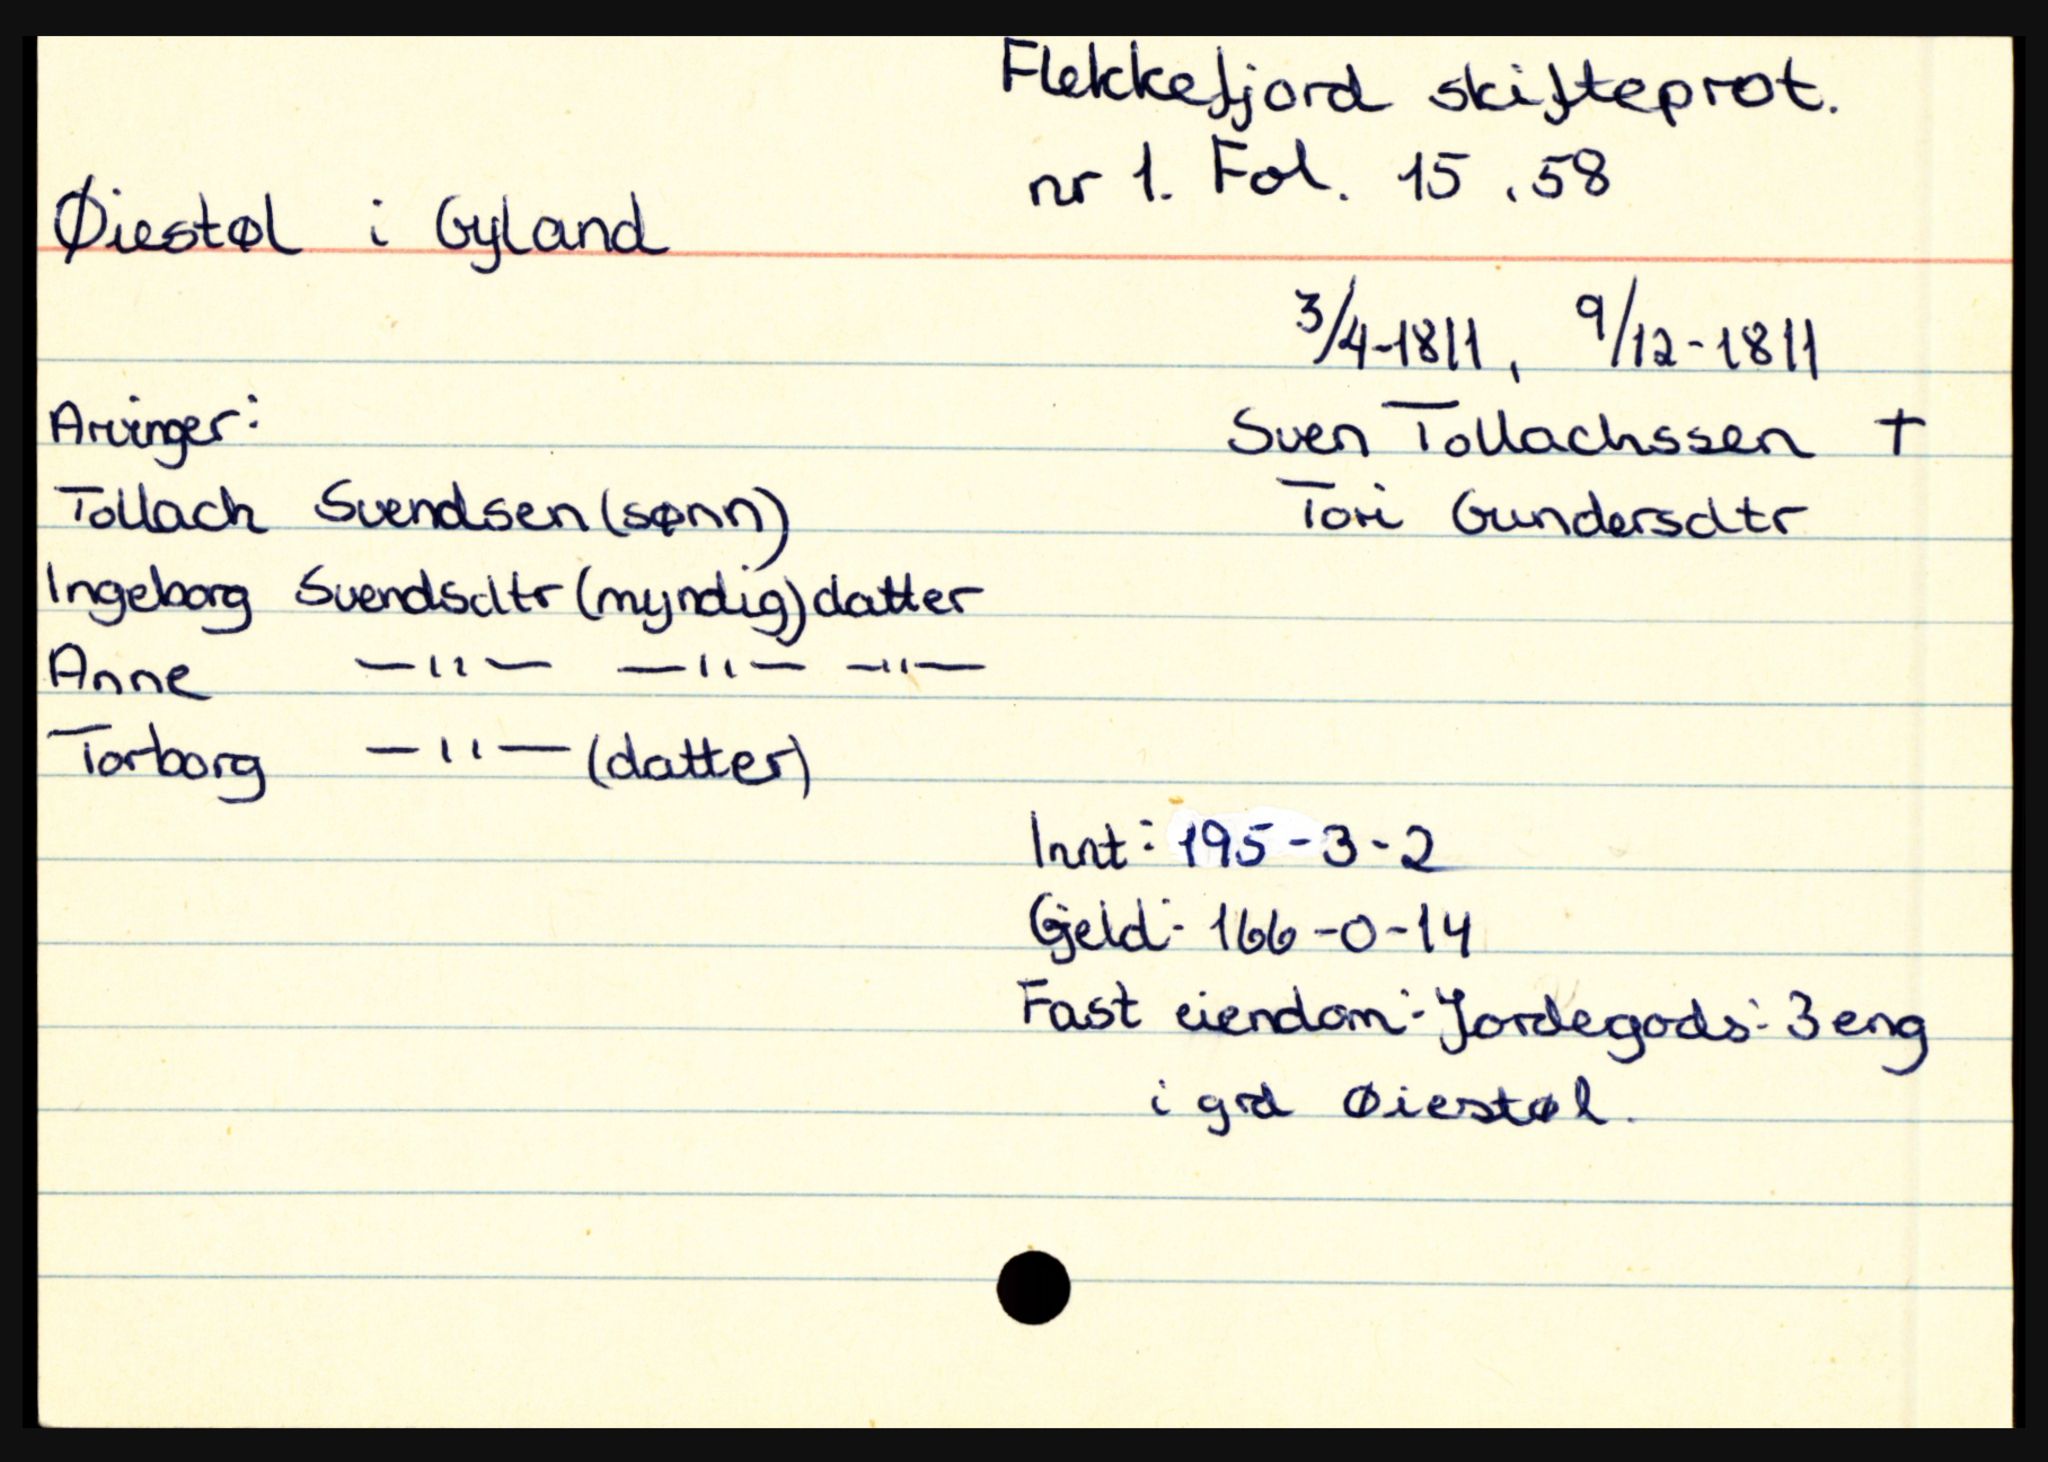 Flekkefjord skifteprot.
nr 1. Fol. 15, 58
Øiestøl i Gyland
3/4-1811, 9/12-1811
Arvinger:
Sven Tollachssen +
Tollach Svendsen (sønn)
Tori Gundersdtr
Ingeborg Svendsdtr (myndig) datter
Anne —"— —"— —"—
Torborg —"— (datter)
Innt: 195-3-2
Gjeld: 166-0-14
Fast eiendom: Jordegods: 3 eng
i grd Øiestøl.